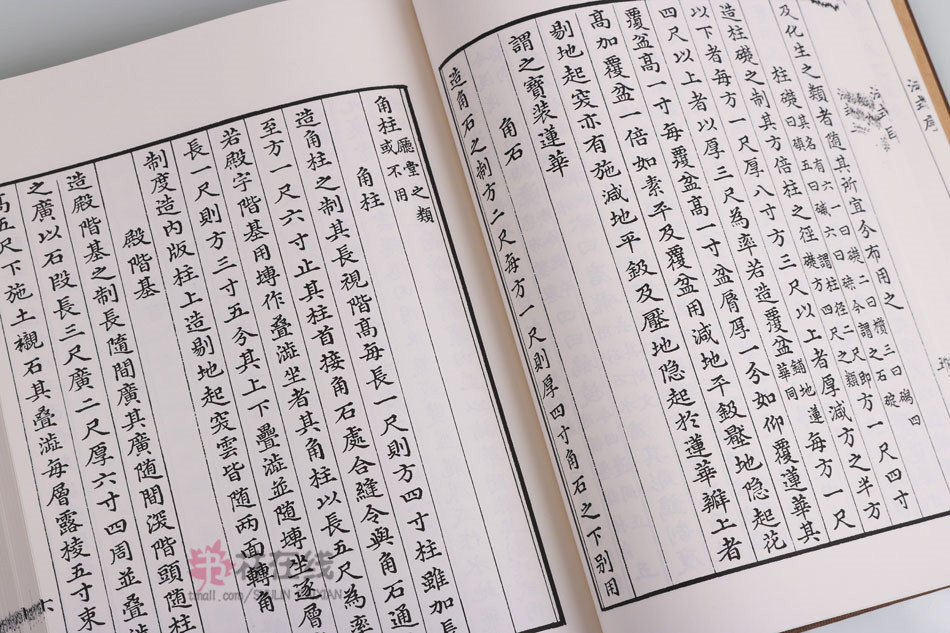 及化生之類者隨其所宜分布用之
柱礎其名有六一曰礎二曰礩三曰四
曰五曰六曰磉今謂之石碇
造柱礎之制其方倍柱之徑謂柱徑二尺即礎方四尺之類方一尺四寸
以下者每方一尺厚八寸方三尺以上者厚減方之半方
四尺以上者以厚三尺為率若造覆盆鋪地蓮華同每方一尺
覆盆高一寸每覆盆高一寸盆脣厚一分如仰覆蓮華其
高加覆盆一倍如素平及覆盆用減地平鈒壓地隱起花
剔地起突亦有施減地平鈒及壓地隱起於蓮華瓣上者
謂之寶装蓮華
角石
造角石之制方二尺每方一尺則厚四寸角石之下別用
角柱廳堂之類或不用
角柱
造角柱之制其長視階高每長一尺則方四寸柱雖加長
至方一尺六寸止其柱首接角石處合縫令與角石通
若殿宇階基用塼作疊澁坐者其角柱以長五尺為率
長一尺則方三寸五分其上下疊澁並隨塼坐逐層
制度造內版柱上造剔地起突雲皆隨兩面轉角
殿階基
造殿階基之制長隨間廣其廣隨間深階頭隨柱
之廣以石段長三尺廣二尺厚六寸四周並疊澁
高五尺下施土襯石其疊澁每層露棱五寸束
在线
tmall.com/